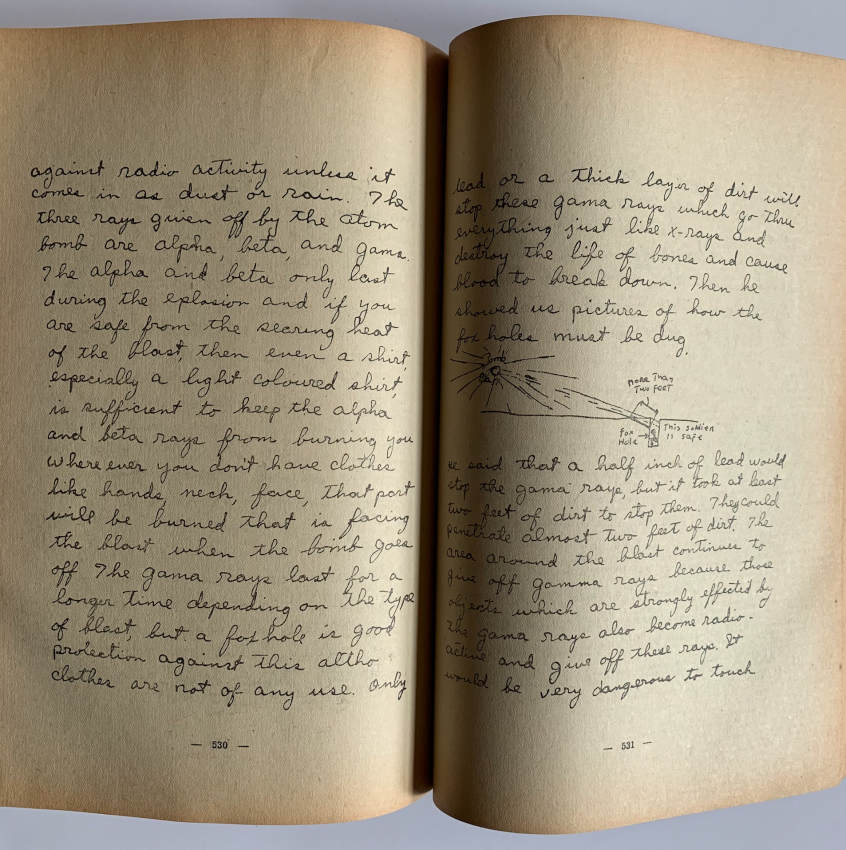 against radio activity unless it
comes in as dust or rain. The
three rays guien off by the atom
bomb are alpha, beta, and gama.
The alpha and beta only last
during the eplosion and if you
are safe from the searing heat
of the blast, then even a shirt,
especially a light coloured shirt,
is sufficient to keep the alpha
and beta rays from burning you
where ever you don't have clothes
like hands, neck, face, that part
will be burned that is facing
the blast when the bomb goes
off The gama rays last for a
longer time depending on the type
of blast, but a fox hole is good
protection against this altho
clothes are not of any use. Only
— 530 —
lead or a thick layer of dirt will
stop these gama rays which go thru
everything just like x-rays and
destroy the life of bones and cause
blood to break down. Then he
showed us pictures of how the
fox holes must be dug.
more Than
Two feet
Fox
Hole
This soldier
is safe
He said that a half inch of lead would
stop the gama rays, but it took at least
two feet of dirt to stop them. They could
penetrate almost two feet of dirt. The
area around the blast continues to
give off gamma rays because those
objects which are strongly effected by
the gama rays also become radio-
active and give off these rays. It
would be very dangerous to touch
— 531 —